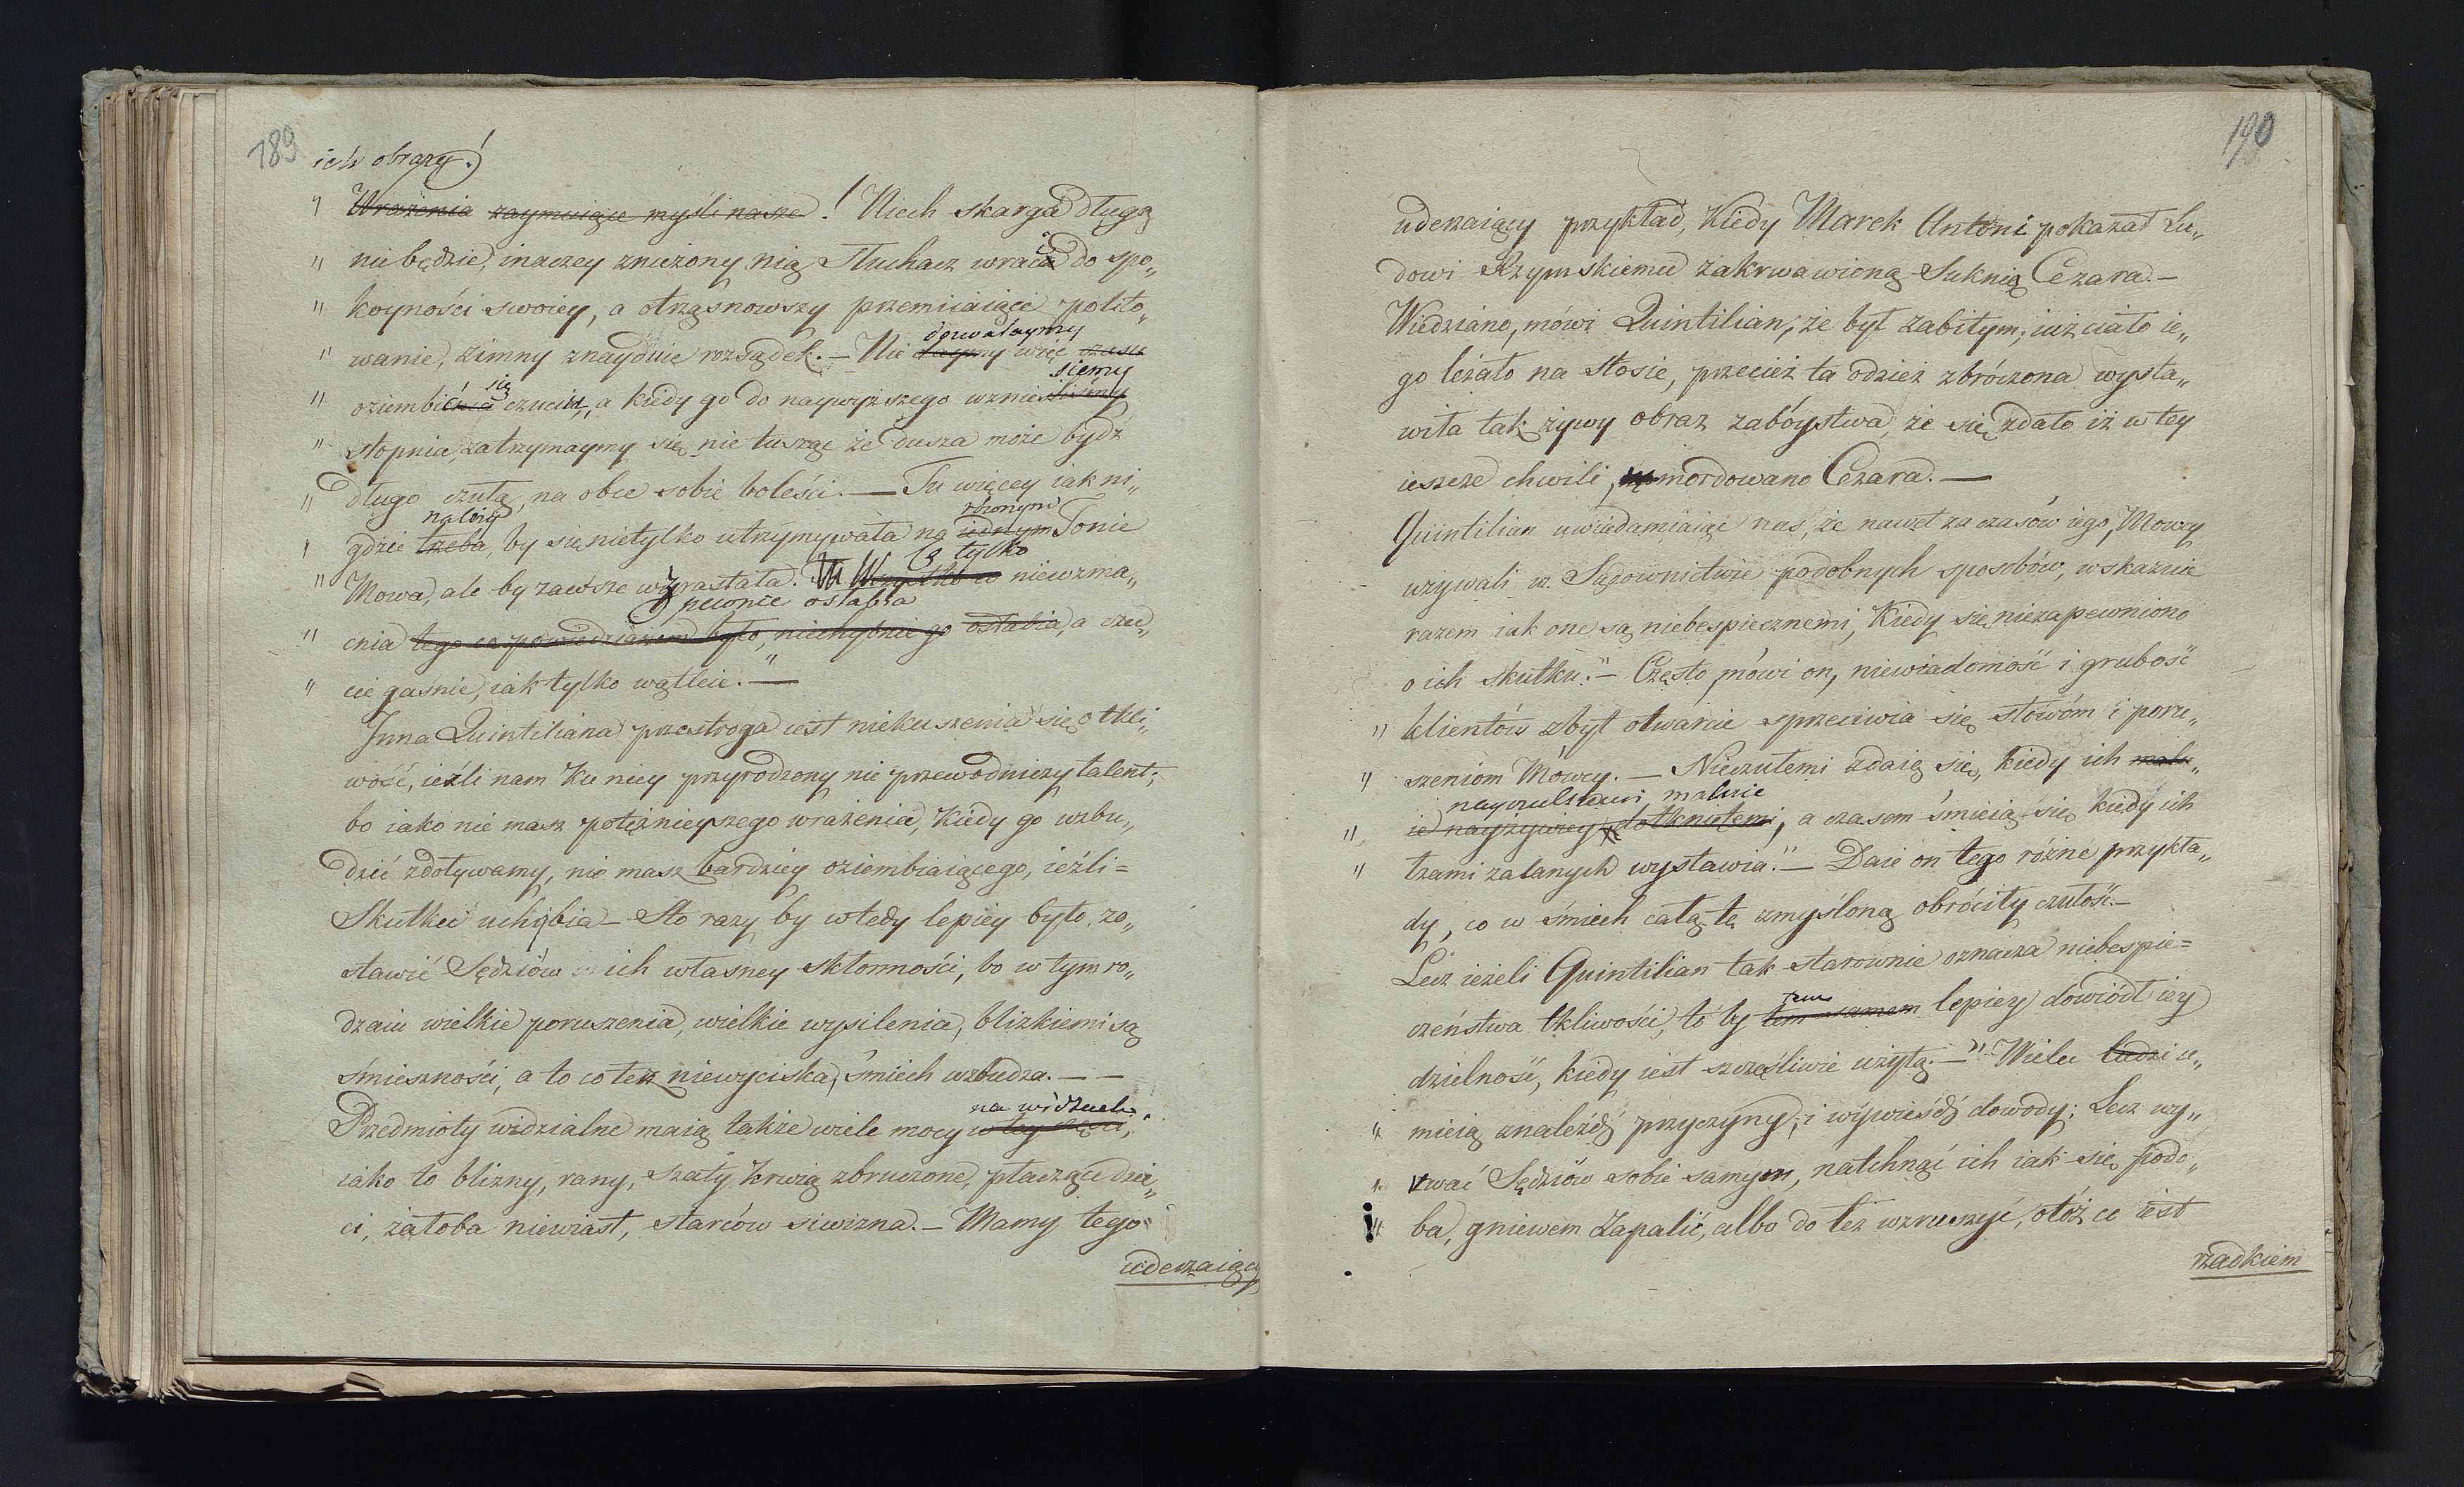 189
ich obrazy!
" Wrażenia zaymuiące myśli nasze! Niech skarga długą
" nie będzie, inaczey znużony nią Słuchacz wraca do spo„
" koyności swoiey, a otrząsnowszy przemiiaiące polito„
dozwalaymy
" wanie, zimny znayduie rozsądek. — Nie daymy więc czasu
się siemy
" oziembienia czuciu, a kiedy go do naywyższego wznieśliśmy
" stopnia, zatrzymaymy się nie tusząc że dusza może bydź
" długo czułą, na obce sobie boleści. — Tu więcey iak ni„
należy równym
" gdzie trzeba, by się nietylko utrzymywała na iednym Tonie
Co tylko
" Mowa, ale by zawsze wzrastała. Wszystko co niewzma„
pewnie osłabia
" cnia tego co powiedzianem było, niechybnie go osłabia, a czu„
" cie gaśnie, iak tylko wątleie." —
Inna Quintiliana przestroga iest niekuszenia się o tkli„
wość, ieźli nam ku niey przyrodzony nie przewodniczy talent;
bo iako nie masz potężnieyszego wrażenia, kiedy go wzbu„
dzić zdoływamy, nie masz bardziey oziembiaiącego, ieźli =
Skutku uchybia — Sto razy by wtedy lepiey było, zo„
stawić Sędziów ich własney skłonności, bo w tym ro„
dzaiu wielkie poruszenia, wielkie wysilenia, blizkiemi są
śmieszności, a to co łez niewyciska, śmiech wzbudza. — —
na widzach
Przedmioty widzialne maią także wiele mocy w tey rzeczy,
iako to blizny, rany, szaty krwią zbroczone, płaczące dzie„
ci, żałoba niewiast, starców siwizna. — Mamy tego
uderzaiący
190
uderzaiący przykład, Kiedy Marek Antoni pokazał Lu„
dowi Rzymskiemu zakrwawioną Suknią Cezara. —
Wiedziano, mówi Quintilian, że był zabitym, iuż ciało ie„
go leżało na stosie, przecież ta odzież zbróczona wysta„
wiła tak żywy obraz zabóystwa, że się zdało iż w tey
ieszcze chwili, mordowano Cezara. —
Quintilian uwiadamiaiąc nas, że nawet za czasów iego, Mowcy
używali w Sądownictwie podobnych sposobów, wskazuie
razem iak one są niebespiecznemi, Kiedy się niezapewniono
o ich skutku." — Często, mówi on, niewiadomość i grubość
" klientów zbyt otwarcie sprzeciwia się słowóm i poru„
" szeniom Mówcy. — Nieczułemi zdaią się, kiedy ich malu„
nayczulszemi maluie
" ie nayżywiey dotkniętemi, a czasem śmieią się kiedy ich
" łzami zalanych wystawia." — Daie on tego różne przykła„
dy, co w śmiech całą tę zmyśloną obróciły czułość. —
Lecz ieżeli Quintilian tak starownie oznacza niebespie=
tem
czeństwa tkliwości, to by tem samem lepiey dowiódł iey
dzielność, kiedy iest szczęśliwie użytą. — " Wielu ludzi u„
" mieią znaleźdź przyczyny, i wywieśdź dowody; Lecz wy„
" rwać Sędziów sobie samym, natchnąć ich iak się podo„
" ba, gniewem zapalić, albo do łez wzruszyć, otóż co iest
rzadkiem